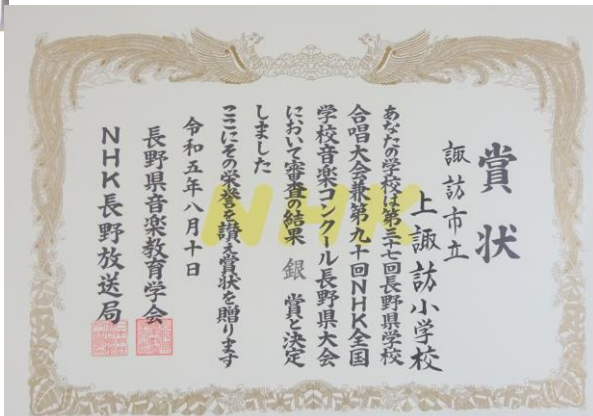 賞状
諏訪市立
上諏訪小学校
あなたの学校は第三十七回長野県学校
合唱大会兼第九十回NHK全国
学校音楽コンクール長野県大会
において審査の結果 銀 賞と決定
しました
ここにその栄誉を讃え賞状を贈ります
令和五年八月十日
長野県音楽教育学会
NHK長野放送局
NHK